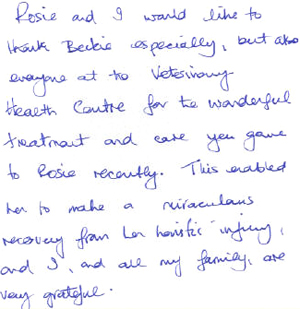 Rosie and I would like to
thank Beckie especially, but also
everyone at the Veterinary
Health Centre for the wonderful
treatment and care you gave
to Rosie recently. This enabled
her to make a miraculous
recovery from her horrific injury,
and I, and all my family, are
very grateful.